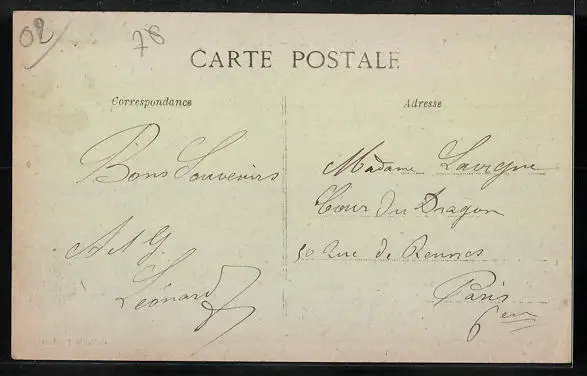 02
78
CARTE POSTALE
Correspondance
Adresse
Bons Souvenirs
A M G
Léonard
Madame Lavigne
Cour Du Dragon
50 Rue de Rennes
Paris
6em